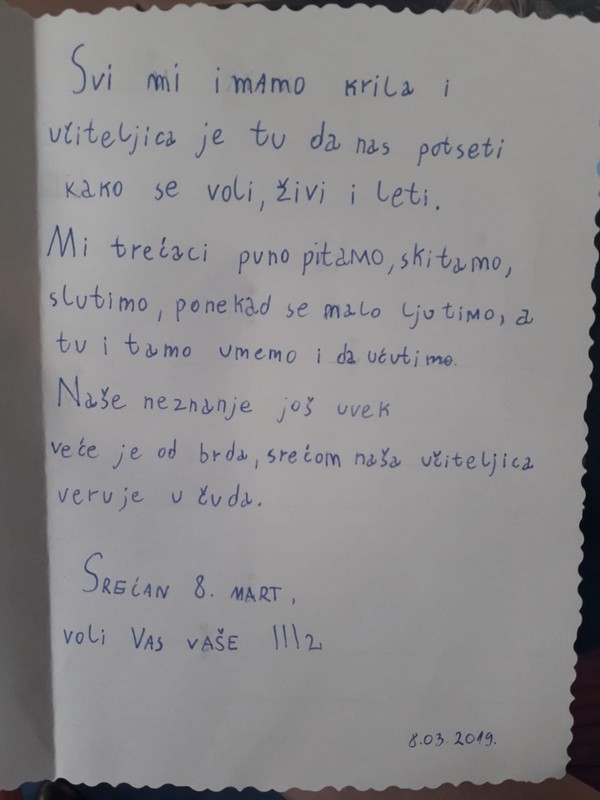 Svi mi imamo krila i
učiteljica je tu da nas potseti
kako se voli, živi i leti.
Mi trećaci puno pitamo, skitamo,
slutimo, ponekad se malo ljutimo, a
tu i tamo umemo i da ućutimo.
Naše neznanje još uvek
veće je od brda, srećom naša učiteljica
veruje u čuda.
SREĆAN 8. MART,
voli VAS VAŠE III2
8.03.2019.